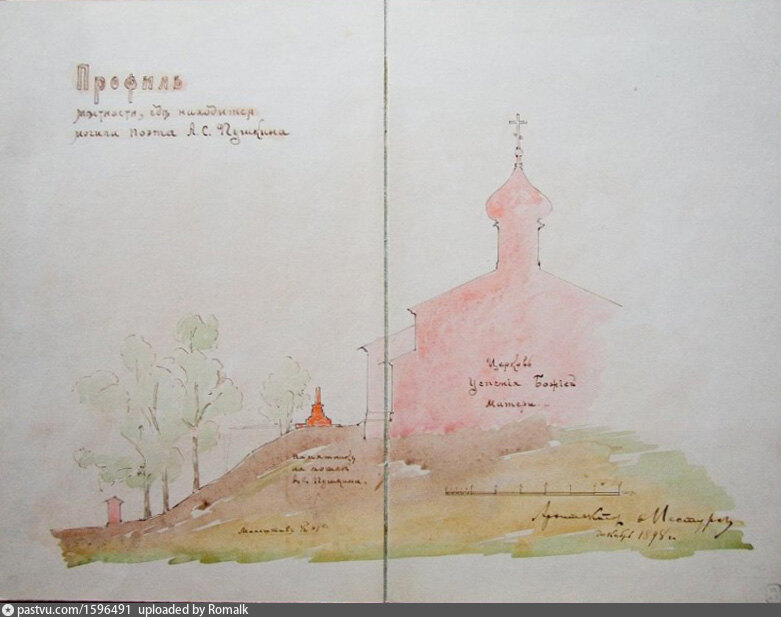 Профиль
мѣстности, гдѣ находится
могила поэта А. С. Пушкина
Церковь
Успенія Божіей
Матери
Памятникъ
на могилѣ
А. С. Пушкина.
Масштабъ
Архитекторъ
декабрь 1898 г.
pastvu.com/1596491 uploaded by Romalk